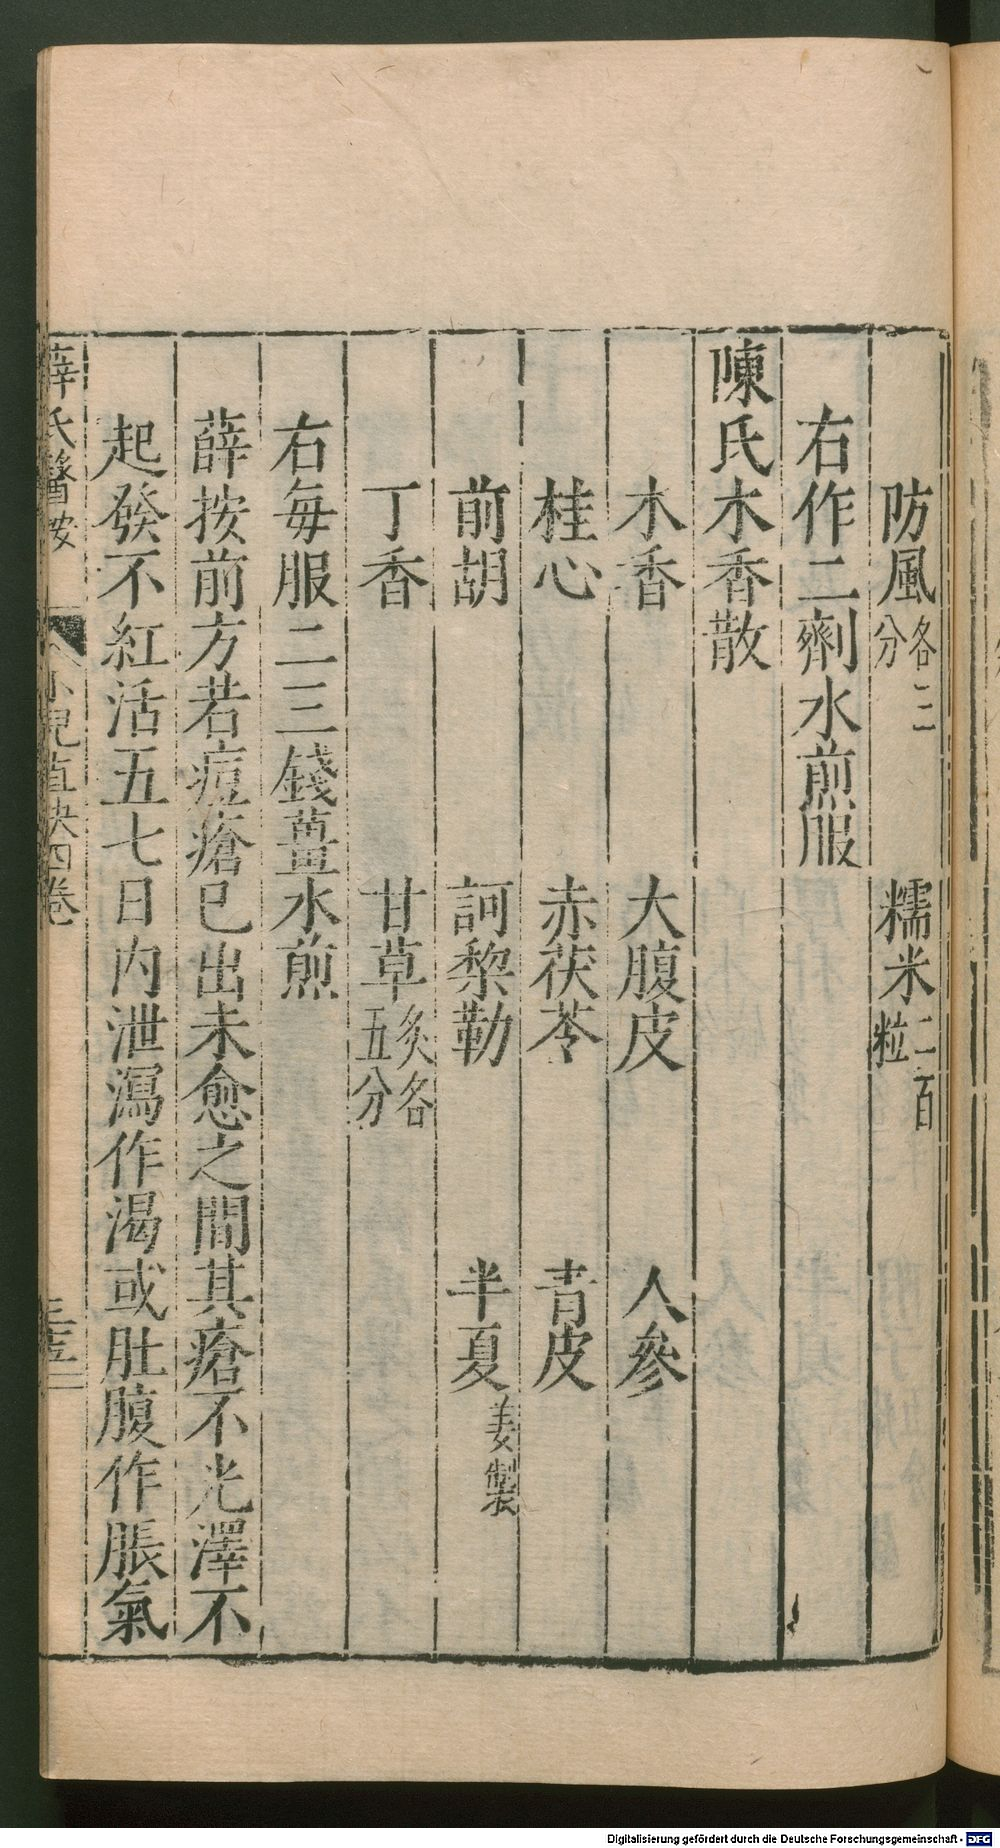 防風各二分　糯米二百粒
右作二劑水煎服
陳氏木香散
木香　大腹皮　人參
桂心　赤茯苓　青皮
前胡　訶黎勒　半夏姜製
丁香　甘草炙各五分
右每服二三錢薑水煎
薛按前方若痘瘡已出未愈之間其瘡不光澤不
起發不紅活五七日內泄瀉作渴或肚腹作脹氣
薛氏醫按　小兒直決四卷
Digitalisierung gefördert durch die Deutsche Forschungsgemeinschaft - DFG